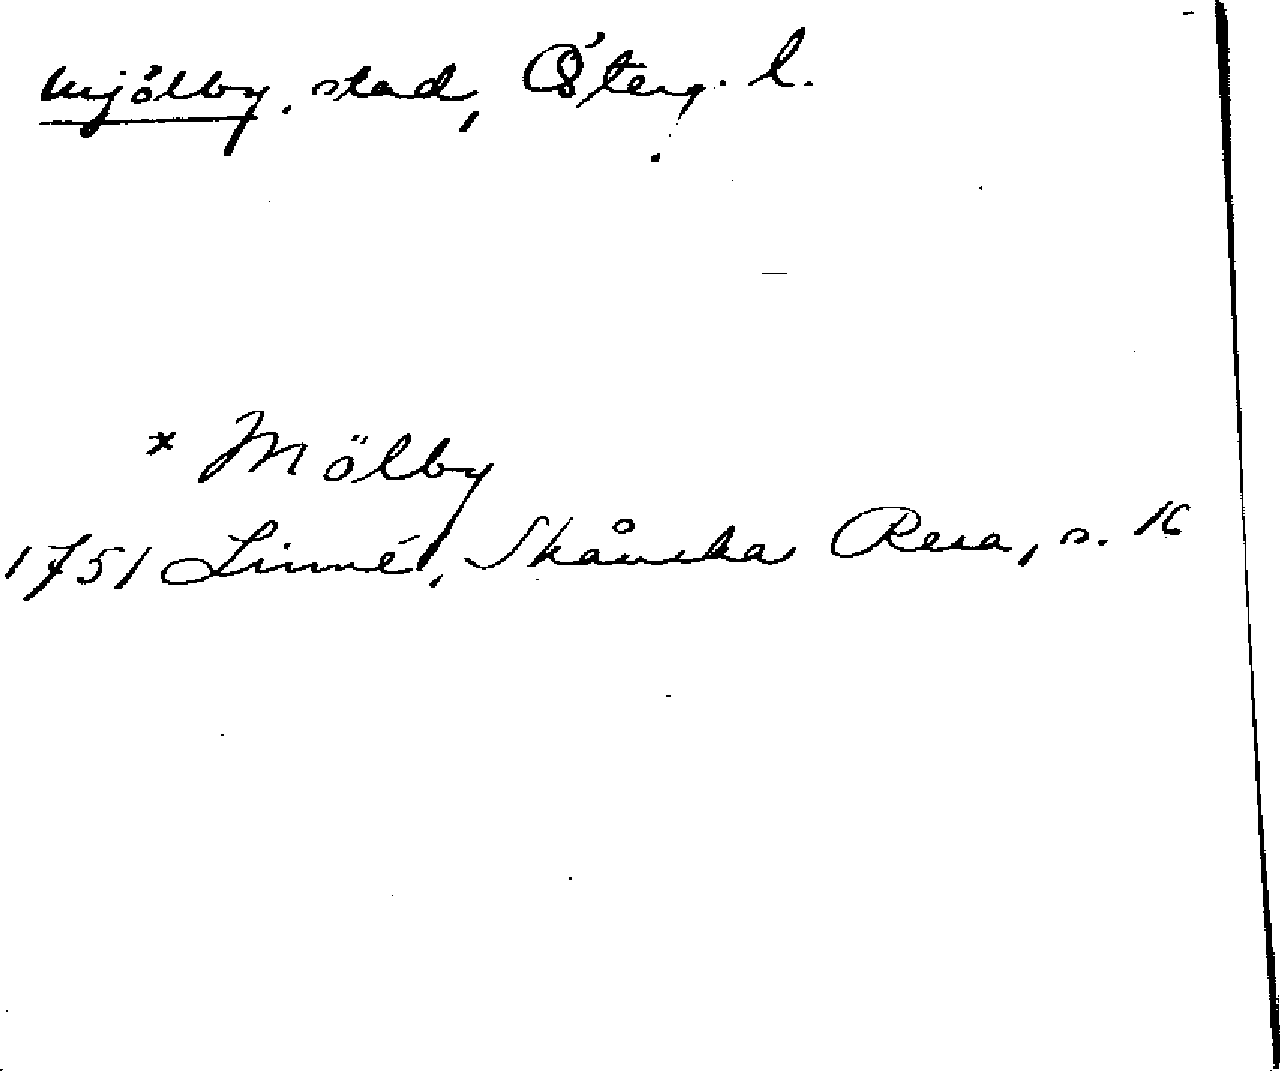 Mjölby, stad, Österg. l.
* Mölby
1751 Linné, Skånska Resa, s. 16